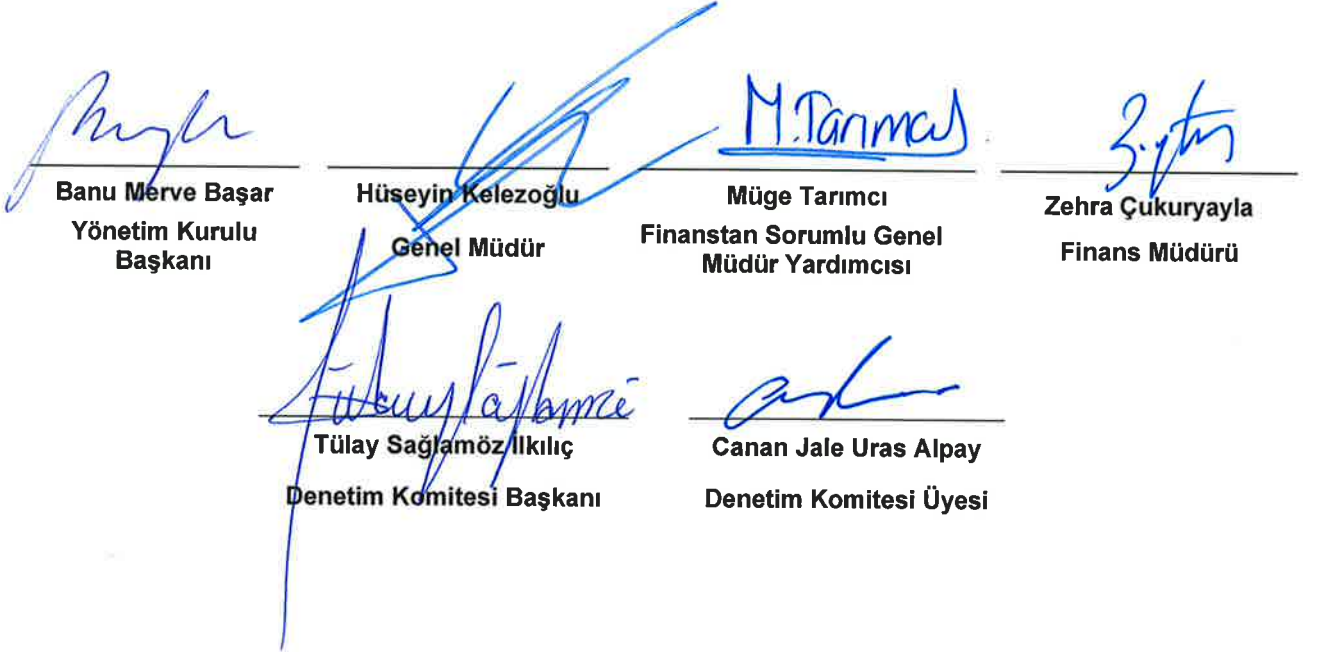 M.Tarımcı
Banu Merve Başar
Yönetim Kurulu
Başkanı
Hüseyin Kelezoğlu
Genel Müdür
Müge Tarımcı
Finanstan Sorumlu Genel
Müdür Yardımcısı
Zehra Çukuryayla
Finans Müdürü
Tülay Sağlamöz İlkılıç
Denetim Komitesi Başkanı
Canan Jale Uras Alpay
Denetim Komitesi Üyesi